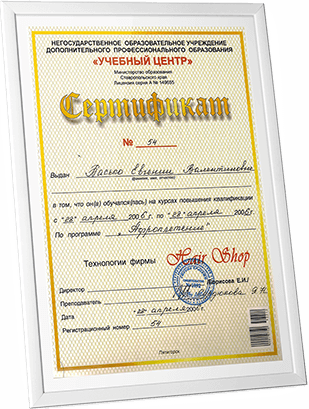 НЕГОСУДАРСТВЕННОЕ ОБРАЗОВАТЕЛЬНОЕ УЧРЕЖДЕНИЕ
ДОПОЛНИТЕЛЬНОГО ПРОФЕССИОНАЛЬНОГО ОБРАЗОВАНИЯ
«УЧЕБНЫЙ ЦЕНТР»
Министерство образования
Ставропольского края
Лицензия серия А № 149695
Сертификат
№ 54
Выдан Евгении Валентиновне
(фамилия, имя, отчество)
в том, что он(а) обучался(лась) на курсах повышения квалификации
с «22» апреля 2006 г. по «22» апреля 2006 г.
По программе
Технологии фирмы Hair Shop
Директор Борисова Е.И./
Преподаватель
Дата «22» апреля 2006 г.
Регистрационный номер 54
Пятигорск